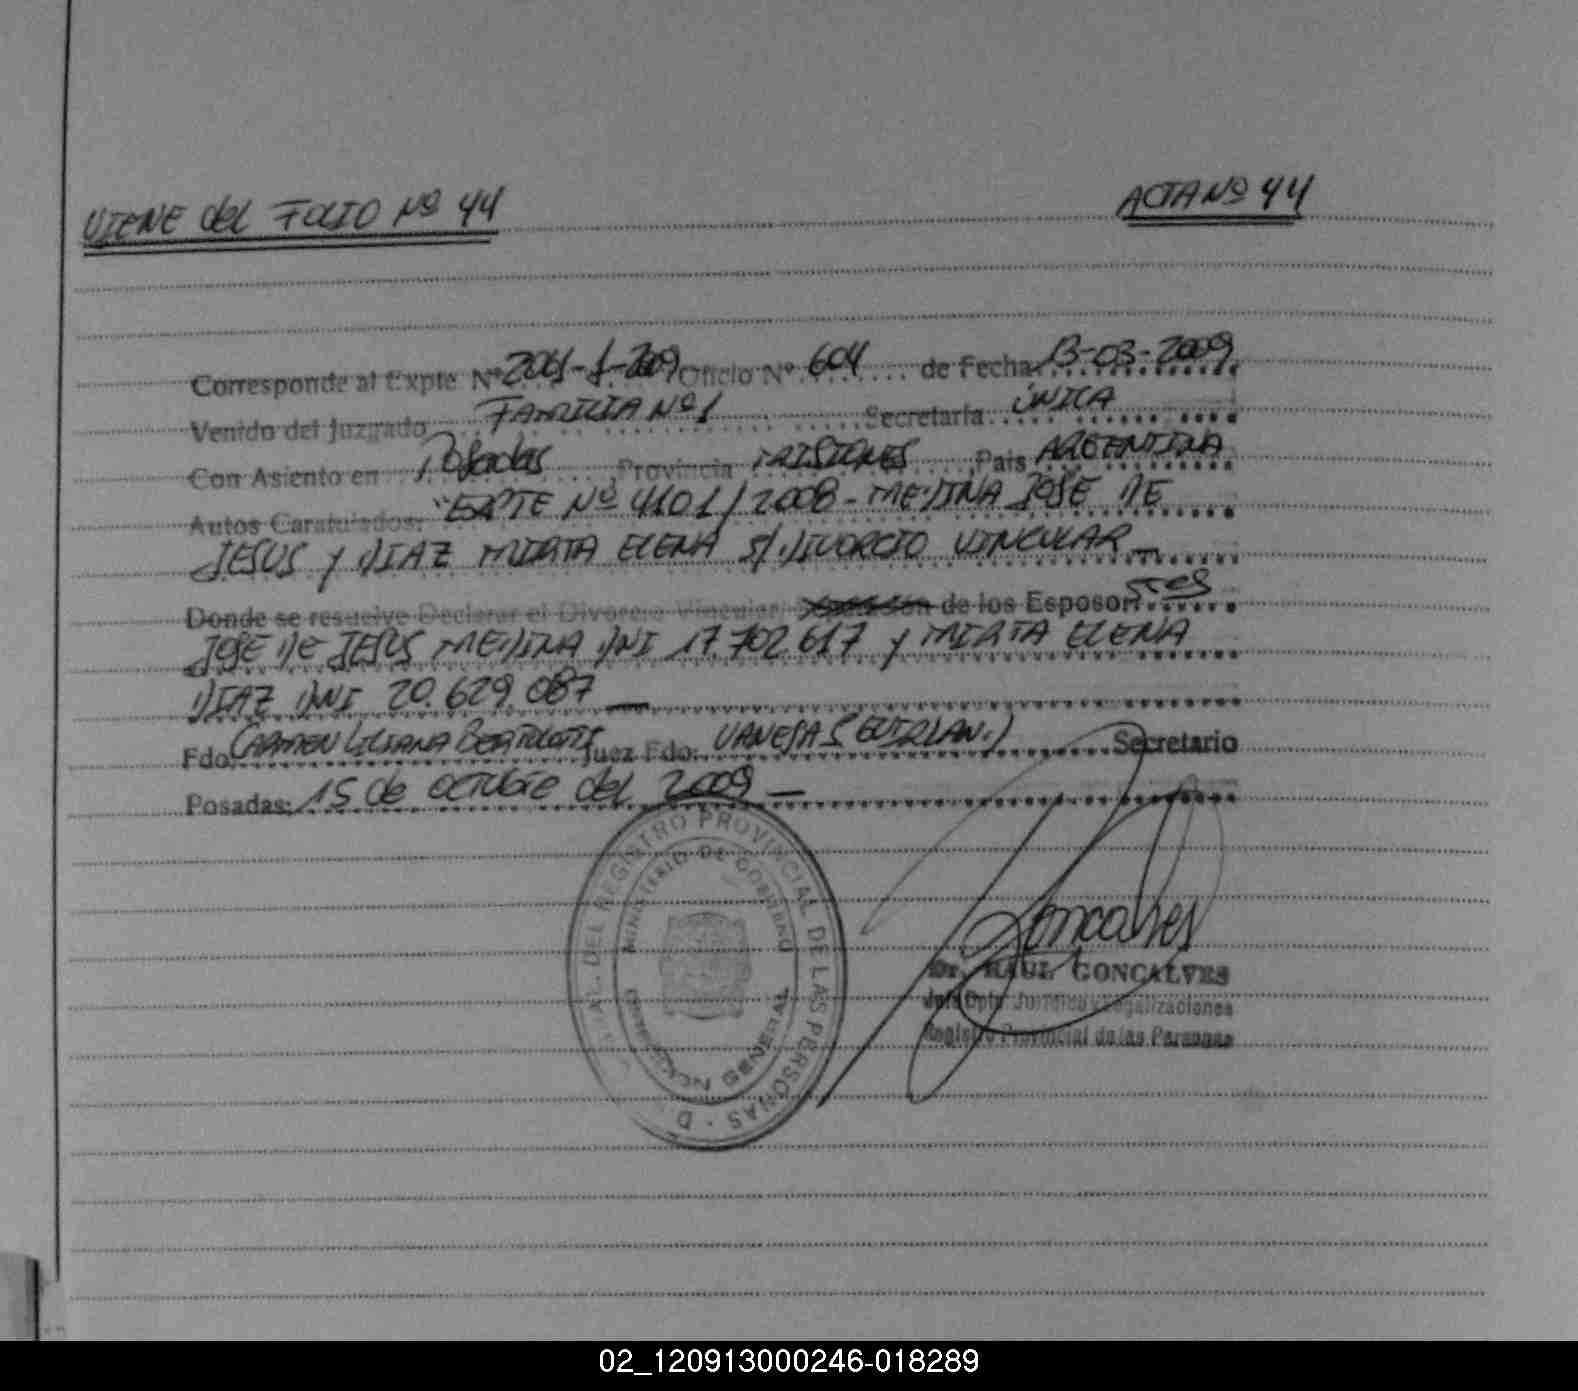 VIENE del FOLIO Nº 44
ACTA Nº 44
Corresponde al Expte Nº Oficio Nº 604 de Fecha 13-03-2009
Venido del Juzgado FAMILIA Nº 1 Secretaría ÚNICA
Con Asiento en Posadas, Provincia MISIONES, País ARGENTINA
Autos Caratulados: "EXPTE Nº 4101/2008 - MEDINA JOSE DE
JESUS y DIAZ MIRTA ELENA S/ DIVORCIO VINCULAR
Donde se resuelve Declarar el Divorcio Vincular de los Esposos: Sres
JOSE DE JESUS MEDINA DNI 17.702.617 y MIRTA ELENA
DIAZ DNI 20.629.087
Fdo: CARMEN LILIANA Juez Fdo: VANESA Secretario
Posadas: 15 de octubre del 2009
DEL REGISTRO PROVINCIAL DE LAS PERSONAS
MINISTERIO DE GOBIERNO
DIRECCION GENERAL
Goncalves
Dr. RAUL GONCALVES
Jefe Dpto. Jurídico y Legalizaciones
Registro Provincial de las Personas
02_120913000246-018289